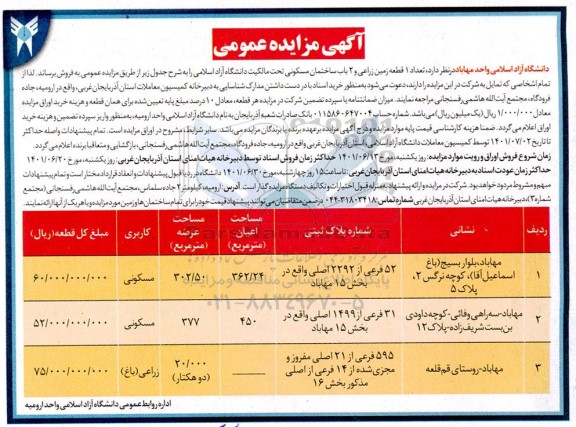 آگهی مزایده عمومی
دانشگاه آزاد اسلامی واحد مهاباد در نظر دارد، تعداد ۱ قطعه زمین زراعی و ۲ باب ساختمان مسکونی تحت مالکیت دانشگاه آزاد اسلامی را به شرح جدول زیر از طریق مزایده عمومی به فروش برساند. لذا از
تمام اشخاصی که تمایل به شرکت در این مزایده را دارند، دعوت می‌شود به منظور خرید اسناد با در دست داشتن مدارک شناسایی به دبیرخانه کمیسیون معاملات استان آذربایجان غربی، واقع در ارومیه، جاده
فرودگاه، مجتمع آیت‌الله هاشمی رفسنجانی مراجعه نمایند. میزان ضمانتنامه یا سپرده تضمین شرکت در مزایده هر قطعه، معادل ۱۰ درصد مبلغ پایه تعیین شده برای همان قطعه و هزینه خرید اوراق مزایده
معادل ۱/۰۰۰/۰۰۰ ریال (یک میلیون ریال) می‌باشد. شماره حساب ۰۱۱۵۸۶۰۶۴۷۰۰۴ بانک صادرات شعبه آذربایجان به نام دانشگاه آزاد اسلامی واحد ارومیه، به منظور واریز سپرده تضمین و هزینه خرید
اوراق اعلام می‌گردد. ضمنا هزینه کارشناسی قیمت پایه موارد مزایده و درج آگهی مزایده برعهده برنده یا برندگان مزایده می‌باشد. سایر شرایط، مشروح در اوراق مزایده است. تمام پیشنهادات واصله حداکثر
تا تاریخ ۱۴۰۱/۰۷/۰۲ توسط کمیسیون معاملات دانشگاه آزاد اسلامی استان آذربایجان غربی واقع در ارومیه، جاده فرودگاه، مجتمع آیت‌الله هاشمی رفسنجانی، بازگشایی و متعاقبا برنده اعلام می‌گردد.
زمان شروع فروش اوراق و رویت موارد مزایده: روز یکشنبه، مورخ ۱۴۰۱/۰۶/۰۶ حداکثر زمان فروش اسناد توسط دبیرخانه هیات امنای استان آذربایجان غربی: روز یکشنبه، مورخ ۱۴۰۱/۰۶/۲۰
حداکثر زمان عودت اسناد به دبیرخانه هیات امنای استان آذربایجان غربی: تا ساعت ۱۵ روز چهارشنبه، مورخ ۱۴۰۱/۰۶/۳۰ دانشگاه در رد یا قبول پیشنهادات و انعقاد قرارداد مختار است و تمام پیشنهادات
مبهم و مشروط مردود خواهد بود. شرکت در مزایده و ارائه پیشنهاد به منزله قبول اختیارات و تکالیف دستگاه مزایده گذار است. آدرس: ارومیه، کیلومتر ۲ جاده سلماس، مجتمع آیت‌الله هاشمی رفسنجانی (مجتمع
شماره ۲)، دبیرخانه هیات امنای استان آذربایجان غربی شماره تماس: ۳۱۸۰۳۴۱۸-۰۴۴ در ضمن متقاضیان می‌توانند پیشنهاد قیمت خود را برای تمام ساختمان‌ها و زمین مورد مزایده و یا هر یک از آنها ارائه نمایند.
ردیف نشانی شماره پلاک ثبتی مساحت اعیان (مترمربع) مساحت عرصه (مترمربع) کاربری مبلغ کل قطعه (ریال)
۱ مهاباد، بلوار بسیج (باغ اسماعیل آقا)، کوچه نرگس ۲، پلاک ۵ ۵۲ فرعی از ۲۲۹۲ اصلی واقع در بخش ۱۵ مهاباد ۳۶۲/۲۴ ۳۰۲/۵۰ مسکونی ۶۰/۰۰۰/۰۰۰/۰۰۰
۲ مهاباد-سه‌راهی وفائی-کوچه داودی بن‌بست شریف‌زاده-پلاک ۱۲ ۳۱ فرعی از ۱۴۹۹ اصلی واقع در بخش ۱۵ مهاباد ۴۵۰ ۳۷۷ مسکونی ۵۲/۰۰۰/۰۰۰/۰۰۰
۳ مهاباد-روستای قم‌قلعه ۵۹۵ فرعی از ۲۱ اصلی مفروز و مجزی شده از ۱۴ فرعی از اصلی مذکور بخش ۱۶ ——— ۲۰/۰۰۰ (دو هکتار) زراعی (باغ) ۷۵/۰۰۰/۰۰۰/۰۰۰
۰۲۱-۸۸۳۴۹۶۷۰-۵
اداره روابط عمومی دانشگاه آزاد اسلامی واحد ارومیه